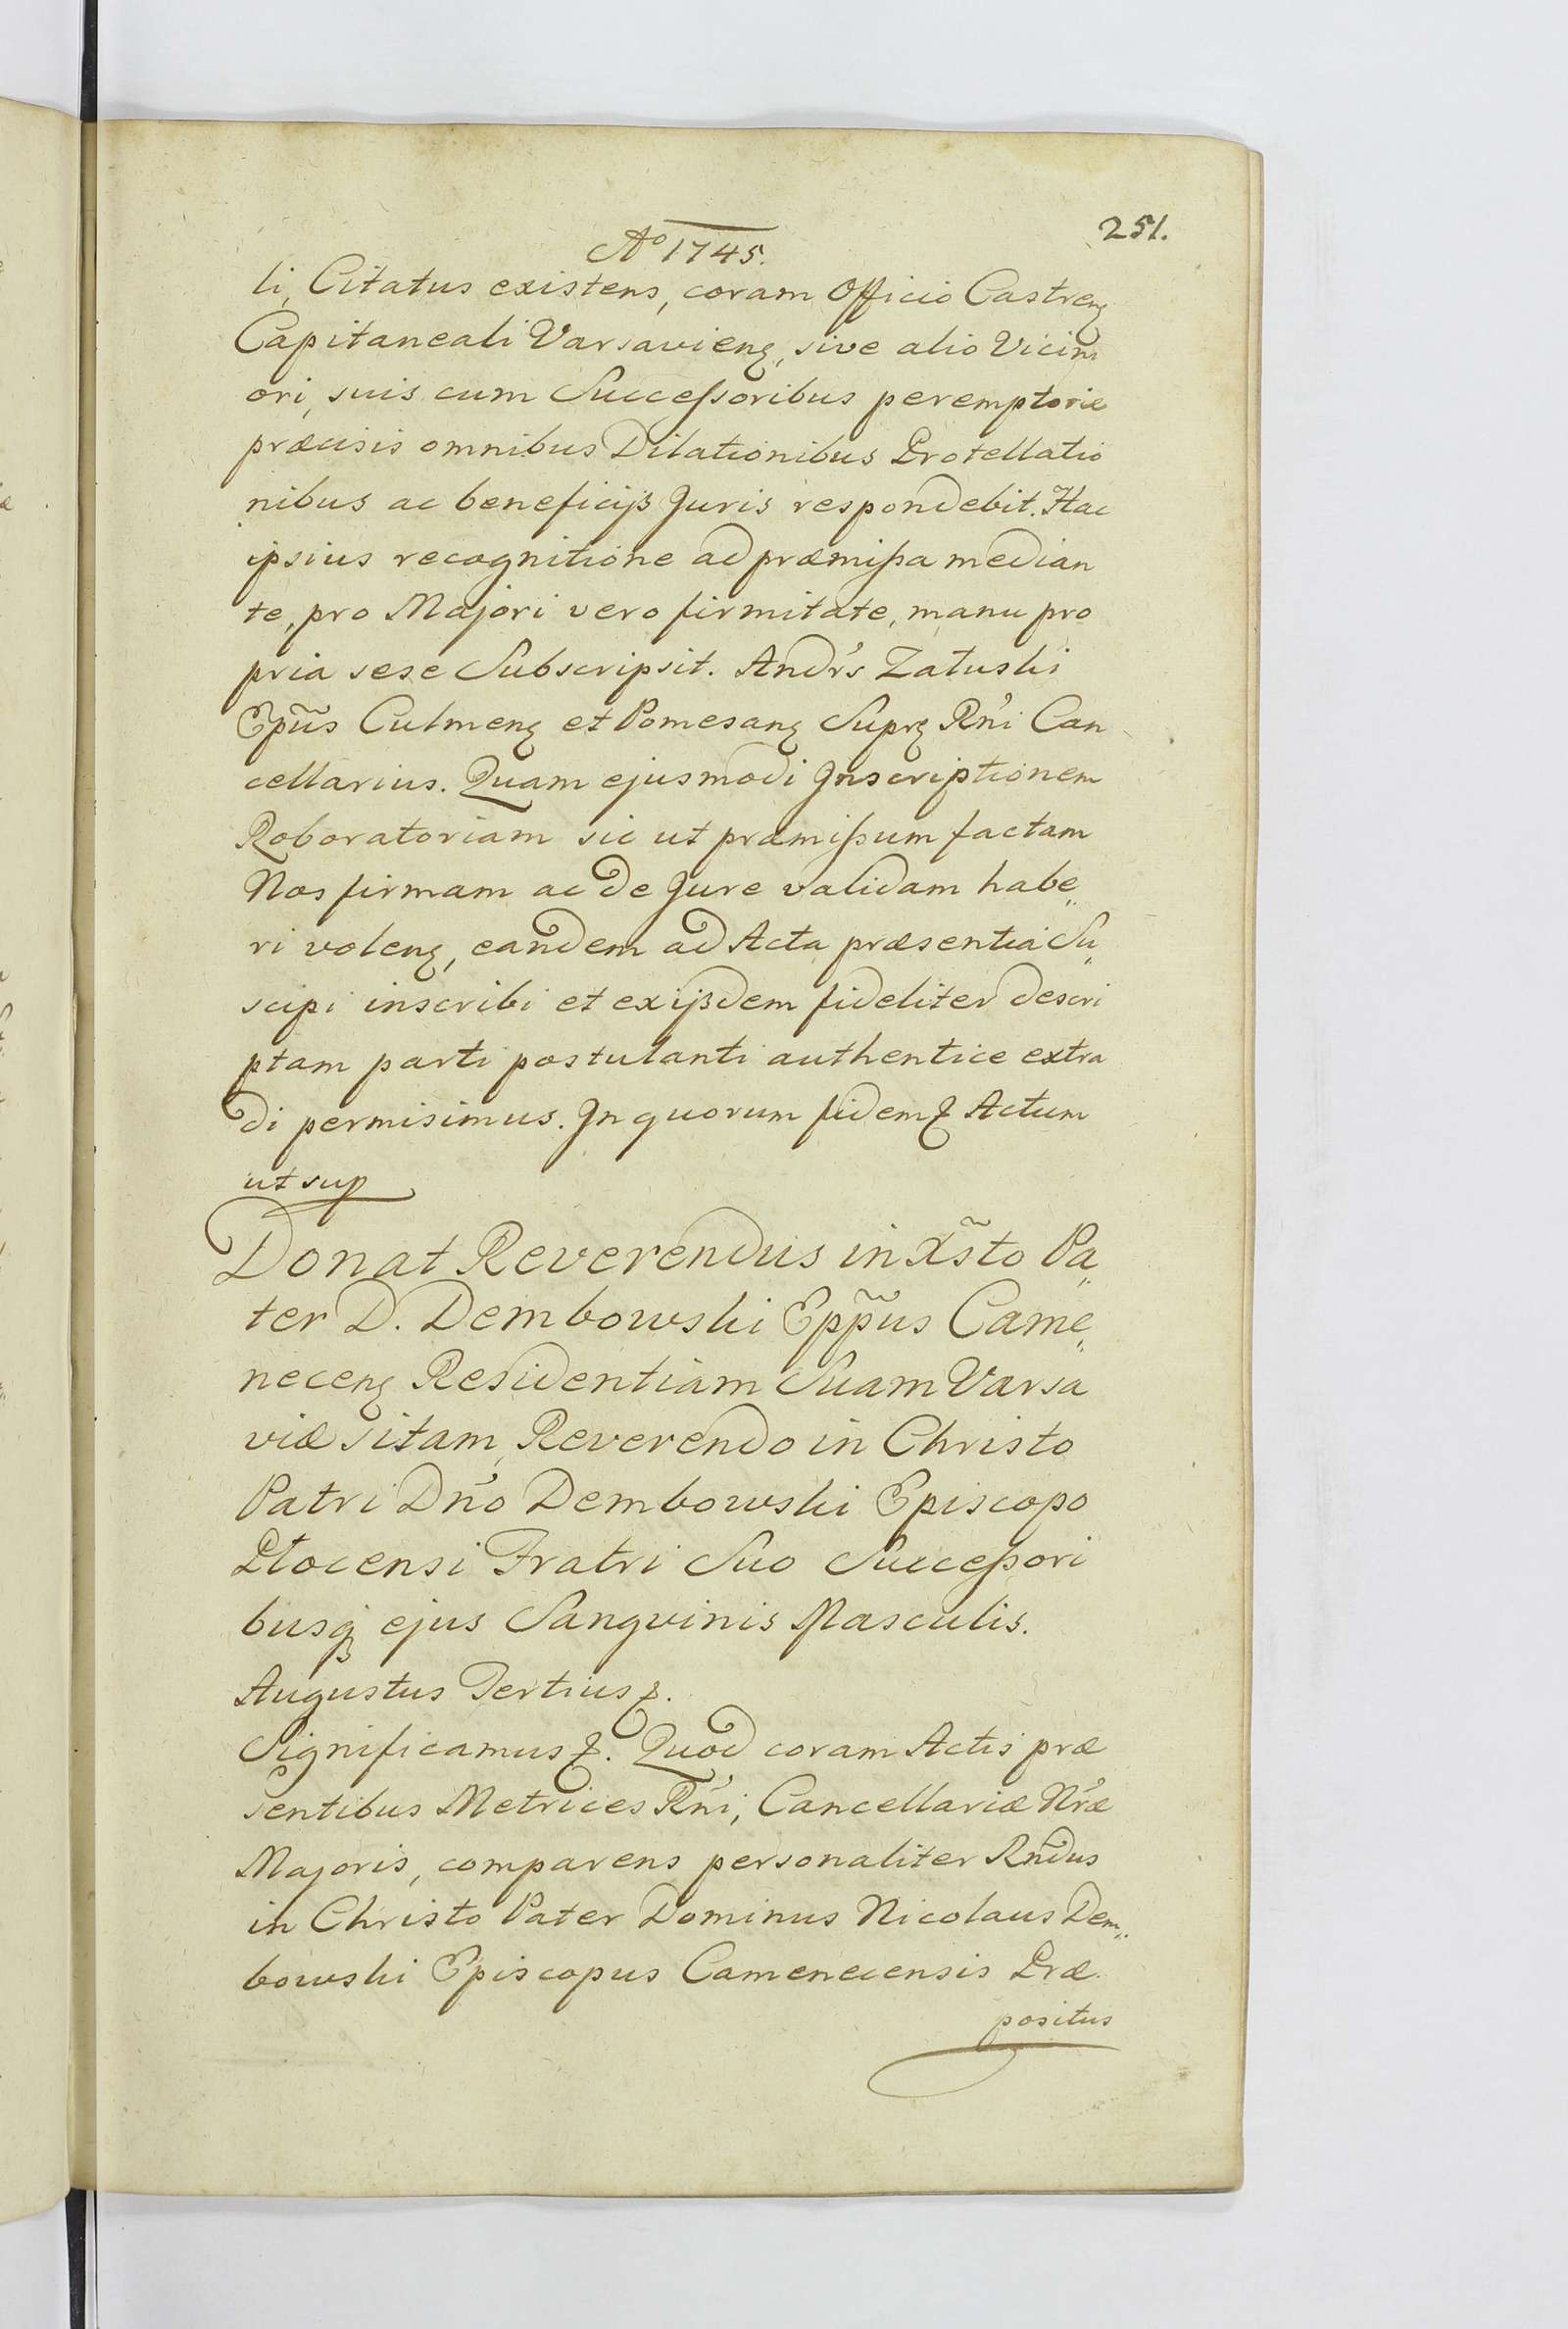 251.
Aº 1745.
li, Citatus existens, coram Officio Castrenȝ
Capitaneali Varsavienȝ, sive alio Vicini
ori, suis cum Succeſsoribus peremptorie
præcisis omnibus Dilationibus Protellatio
nibus ac beneficijs Juris respondebit. Hac
ipsius recognitione ad præmiſsa median
te, pro Majori vero firmitate, manu pro
pria sese Subscripsit. Andr's Załuski
Epũs Culmenȝ et Pomesanȝ Suprȝ Rñi Can
cellarius. Quam ejusmodi Inscriptionem
Roboratoriam sic ut præmiſsum factam
Nos firmam ac de Jure validam habe„
ri volenȝ, eandem ad Acta præsentia Su„
scipi inscribi et ex ijsdem fideliter descri
ptam parti postulanti authentice extra
di permisimus. In quorum fidem ꝛ Actum
ut sup
Donat Reverendus in Xs̃to Pa„
ter D. Dembowski Epp̃us Came„
necenȝ Residentiam Suam Varsa
viæ sitam, Reverendo in Christo
Patri Dño Dembowski Episcopo
Płocensi Fratri Suo Succeſsori
busqȝ ejus Sangvinis Masculis.
Augustus Tertius ꝛ.
Significamus ꝛ. Quod coram Actis præ
sentibus Metrices Rñi, Cancellariæ Nr̃æ
Majoris, comparens personaliter Rñdus
in Christo Pater Dominus Nicolaus Dem„
bowski Episcopus Camenecensis Præ
positus